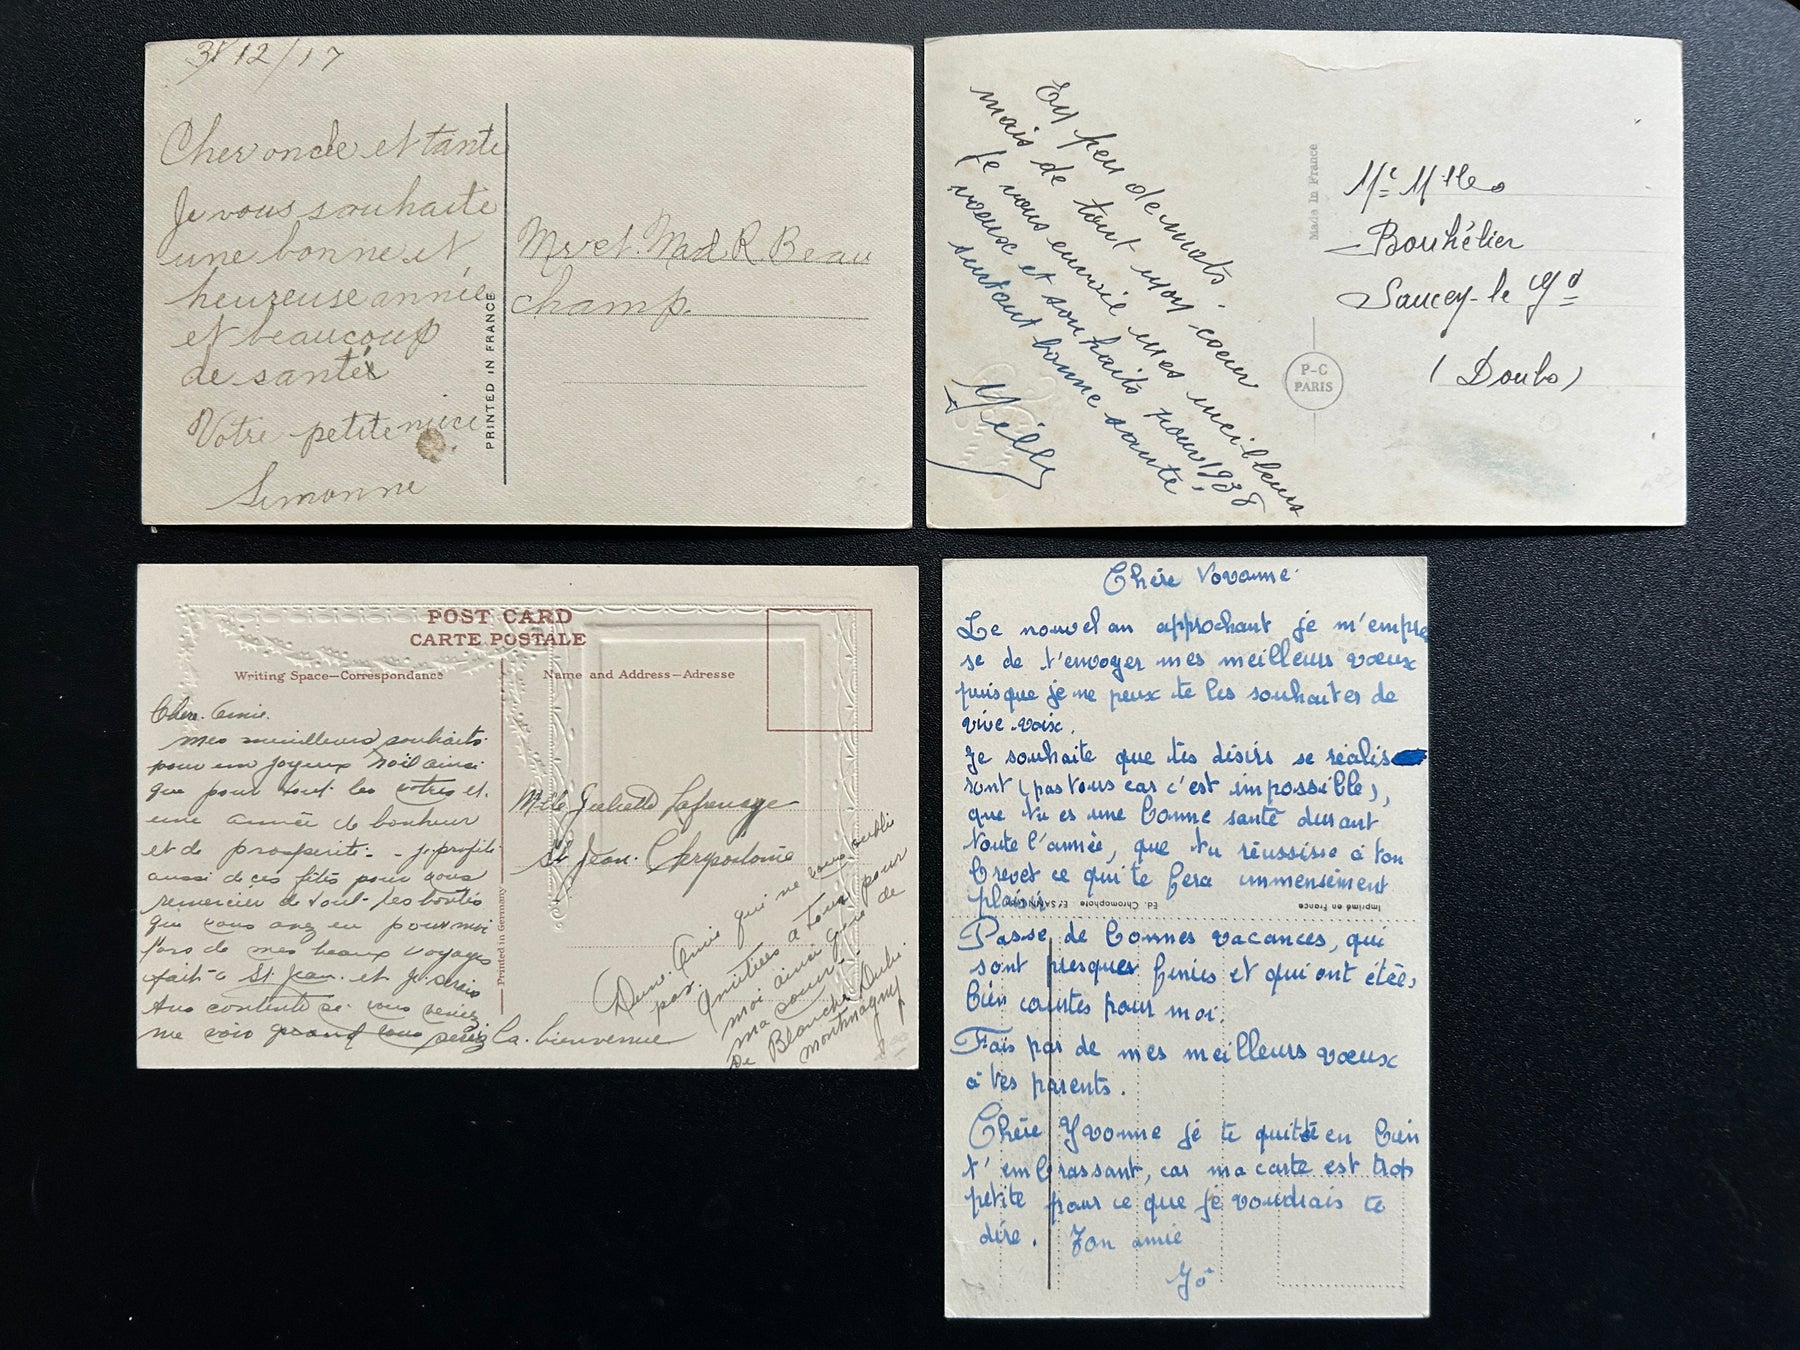 31/12/17
Cher oncle et tante
Je vous souhaite
une bonne et
heureuse année
et beaucoup
de santé
Votre petite niece
Simonne
PRINTED IN FRANCE
Mr et. Mad. R. Beau
champ.
En peu de mots.
mais de tout mon coeur
Je vous envoie mes meilleurs
voeux et souhaits pour 1938
surtout bonne santé.
Made in France
P-C
PARIS
Mr Mlles
Bouhélier
Sancey-le-Gd
(Doubs)
POST CARD
CARTE POSTALE
Writing Space—Correspondance
Name and Address—Adresse
Chere. Amie.
mes meilleurs souhaits
pour un joyeux Noël ainsi
que pour tout les votres et.
une année de bonheur
et de prosperité. - je profite
aussi de ces fêtes pour vous
remercier de tout les bontés
que vous avez eu pour moi
lors de mes beaux voyages
fait à St Jean. et je serais
très contente si vous venez
me voir quand vous serez la bienvenue
Printed in Germany
Mlle Juliette Lafrenaye
St Jean. Chrysostome
D'une. Amie qui ne vous oubli
pas.
Amitiées a tous pour
moi ainsi que de
ma soeur.
De Blanche Dubé
Montmagny
Chère Yvonne.
Le nouvel an approchant je m'empre
se de t'envoyer mes meilleurs vœux
puisque je ne peux te les souhaiter de
vive-voix.
Je souhaite que tes désirs se réalis
sont (pas tous car c'est impossible),
que tu es une bonne santé durant
toute l'année, que tu réussisse à ton
brevet ce qui te fera immensément
plaisir
Ed. Chromophote
Imprimé en France
Passe de bonnes vacances, qui
sont presques finies et qui ont étées
bien courtes pour moi.
Fais par de mes meilleurs vœux
à tes parents.
Chère Yvonne je te quitte en bien
t'embrassant, car ma carte est trop
petite pour ce que je voudrais te
dire. Ton amie
Yô